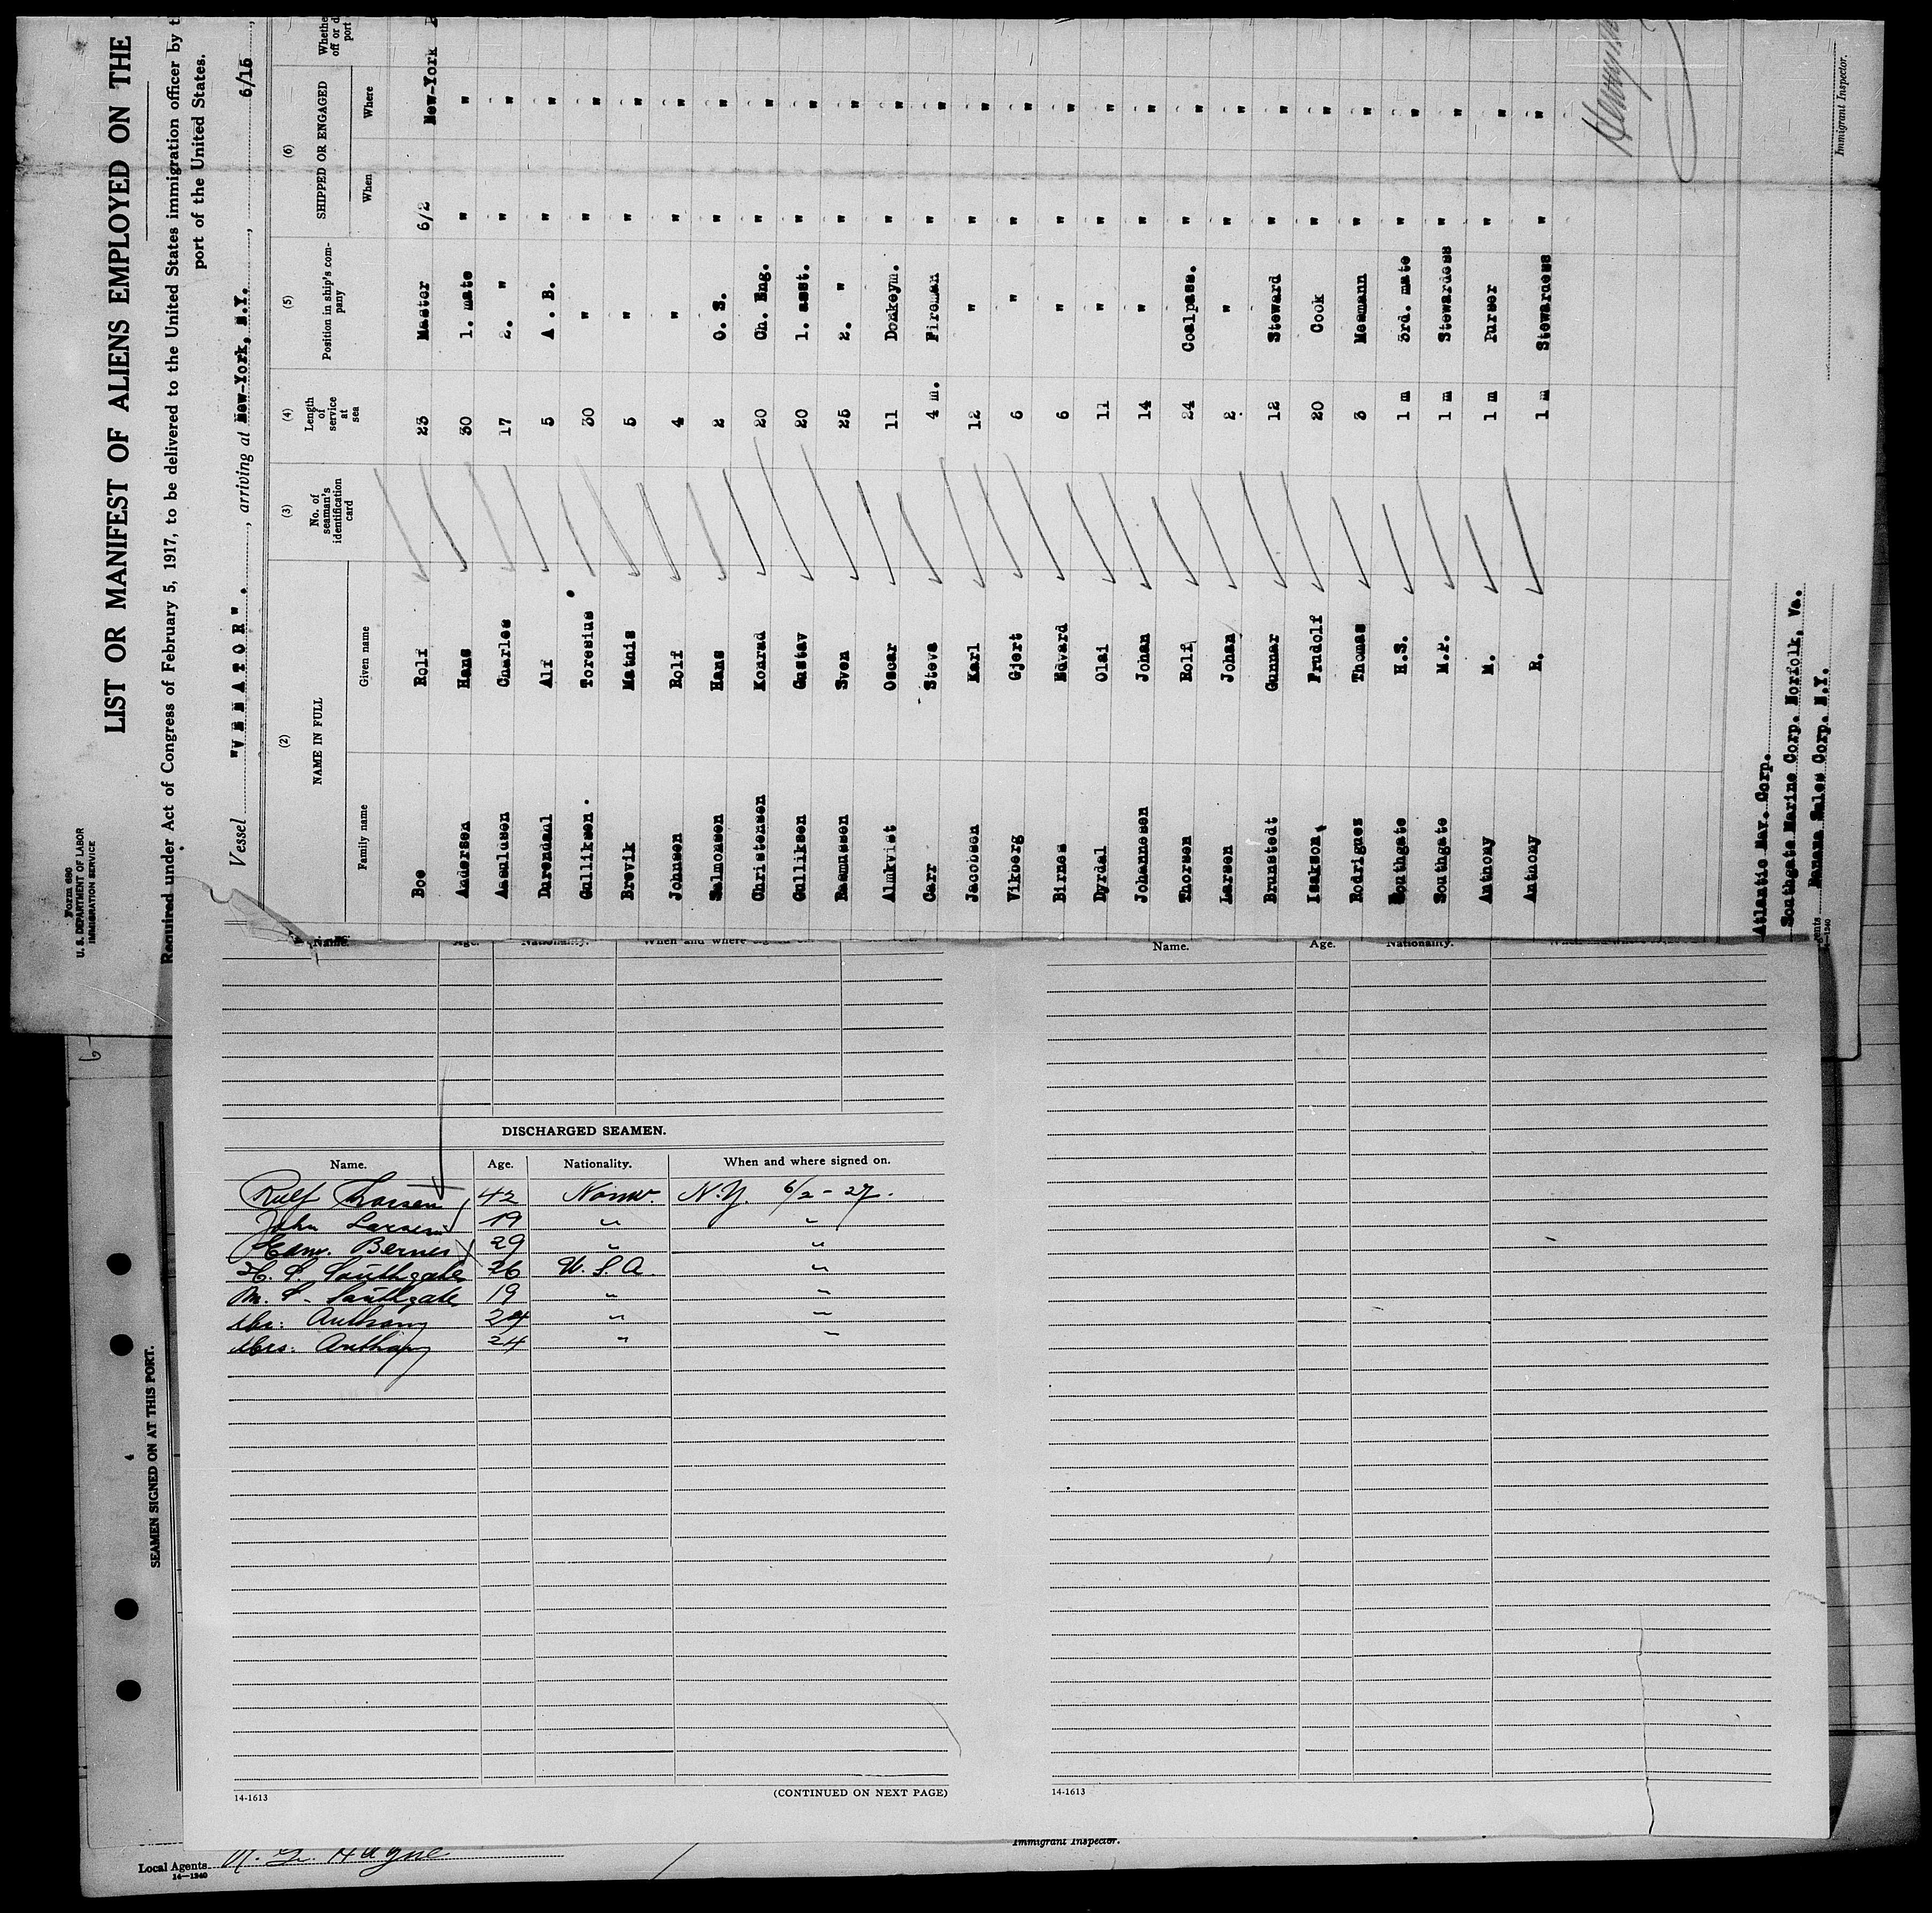 Form 680
U. S. DEPARTMENT OF LABOR
IMMIGRATION SERVICE
LIST OR MANIFEST OF ALIENS EMPLOYED ON THE
Required under Act of Congress of February 5, 1917, to be delivered to the United States immigration officer by
port of the United States.
Vessel "VENATOR". , arriving at New-York, N.Y. , 6/15
(2) (3) (4) (5) (6)
NAME IN FULL No. of seaman's identification card Length of service at sea Position in ship's company SHIPPED OR ENGAGED Whethe
off or d
port
Family name Given name When Where
Boe Rolf 23 Master 6/2 New-York
Andersen Hans 30 1. mate " "
Asculusen Charles 17 2. " " "
Durendahl Alf 5 A . B. " "
Gulliksen. Toresius 30 " " "
Brevik Mathis 5 " " "
Johnsen Rolf 4 " " "
Salmonsen Hans 2 O. S. " "
Christensen Konrad 20 Ch. Eng. " "
Gulliksen Gustav 20 1. asst. " "
Rasmussen Sven 25 2. " " "
Almkvist Oscar 11 Donkeym. " "
Carr Steva 4 m. Fireman " "
Jacobsen Karl 12 " " "
Vikberg Gjert 6 " " "
Birnes Edvard 6 " " "
Dyrdal Olai 11 " " "
Johannesen Johan 14 " " "
Thorsen Rolf 24 Coalpass. " "
Larsen Johan 2. " " "
Brunstedt Gunnar 12 Steward " "
Isakson Frudolf 20 Cook " "
Rodriguez Thomas 3 Messmann " "
Southgate H.S. 1 m 3rd. mate " "
Southgate M.P. 1 m Stewardess " "
Anthony M. 1 m Purser " "
Anthony R. 1 m Stewardess " "
Atlantic Nav. Corp.
Southgate Marine Corp. Norfolk, Va.
Banana Sales Corp. N.Y.
gents
14—1240
Immigrant Inspector.
Name. Age. Nationality. When and where signed on.
Name. Age. Nationality.
DISCHARGED SEAMEN.
Name. Age. Nationality. When and where signed on.
Rulf Thorsen 42 Norw. N.Y. 6/2 - 27.
John Larsen 19 " "
Edw. Bernes 29 " "
H. S. Southgate 26 U. S. A. "
M. S. Southgate 19 " "
Mr: Anthony 29 " "
Mrs. Anthony 24 " "
14-1613 (CONTINUED ON NEXT PAGE)
14-1613
4
SEAMEN SIGNED ON AT THIS PORT.
Immigrant Inspector.
Local Agents Hayne
14—1240